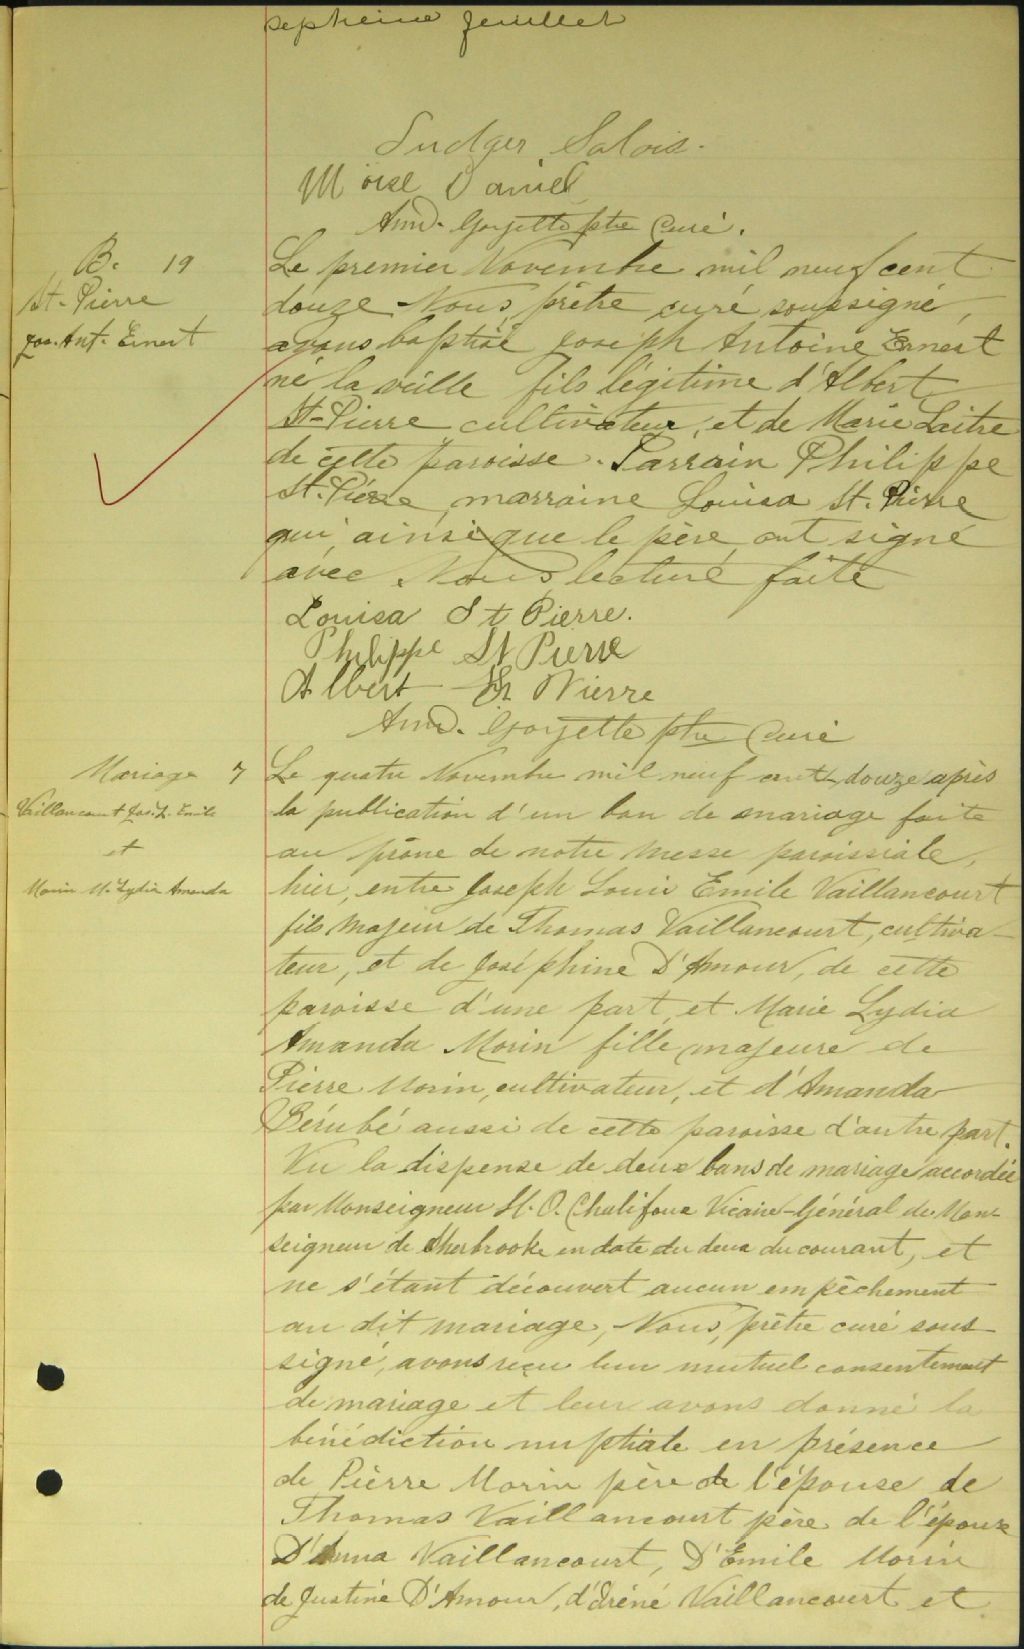 septième feuillet
Ludger Salois.
Moise Daniel
Amd. Goyette ptre Curé.
B. 19
St-Pierre
Jos. Ant. Ernest
Le premier Novembre mil neuf cent
douze Nous, prêtre curé soussigné,
avons baptisé Joseph Antoine Ernest
né la veille fils légitime d'Albert
St-Pierre cultivateur, et de Marie Laitre
de cette paroisse. Parrain Philippe
St. Pierre, marraine Louisa St. Pierre
qui, ainsi que le père, ont signé
avec Nous lecture faite
Louisa St Pierre.
Philippe St Pierre
Albert St Pierre
Amd. Goyette ptre Curé
Mariage 7
Vaillancourt Jos. L. Emile
et
Morin M. Lydia Amanda
Le quatre Novembre mil neuf cent douze après
la publication d'un ban de mariage faite
au prône de notre messe paroissiale,
hier, entre Joseph Louis Emile Vaillancourt
fils majeur de Thomas Vaillancourt, cultiva-
teur, et de Joséphine D'Amour, de cette
paroisse d'une part, et Marie Lydia
Amanda Morin fille majeure de
Pierre Morin, cultivateur, et d'Amanda
Bérubé aussi de cette paroisse d'autre part.
Vu la dispense de deux bans de mariage accordée
par Monseigneur H. O. Chalifoux Vicaire-Général de Mon-
seigneur de Sherbrooke en date du deux du courant, et
ne s'étant découvert aucun empêchement
au dit mariage, Nous, prêtre curé sous-
signé, avons reçu leur mutuel consentement
de mariage et leur avons donné la
bénédiction nuptiale en présence
de Pierre Morin père de l'épouse de
Thomas Vaillancourt père de l'époux
D'Anna Vaillancourt, D'Émile Morin
de Justine D'Amour, d'Iréné Vaillancourt et